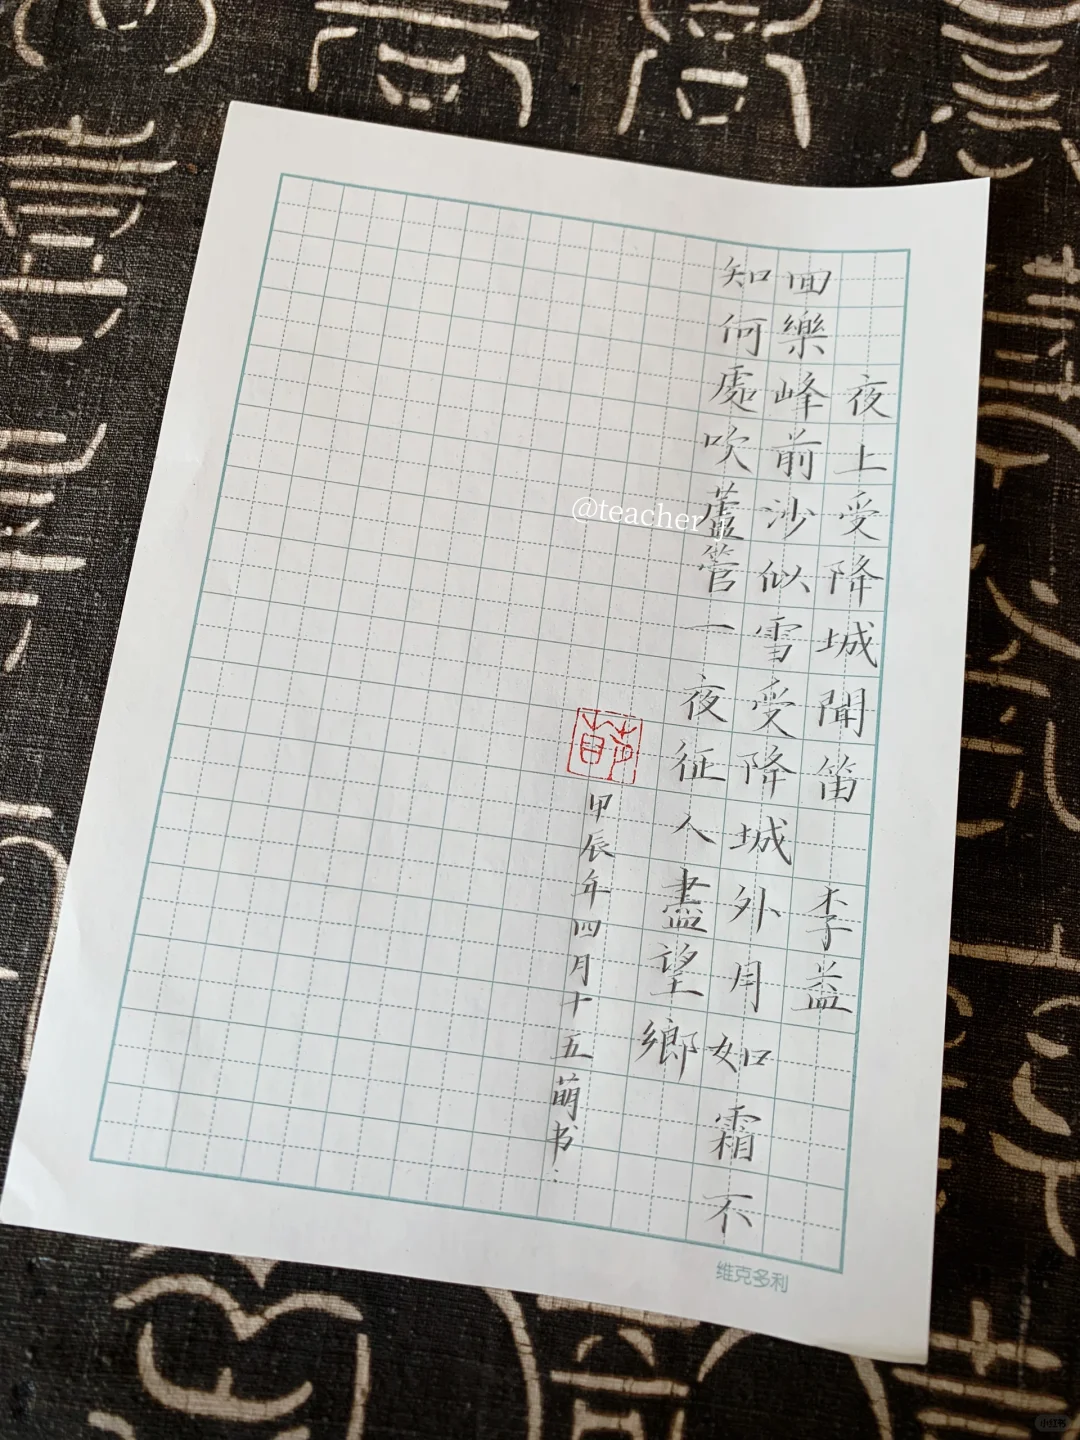 夜上受降城聞笛 李益
回樂峰前沙似雪受降城外月如霜不
知何處吹蘆管一夜征人盡望鄉
甲辰年四月十五萌书
@teacher j
维克多利
小红书